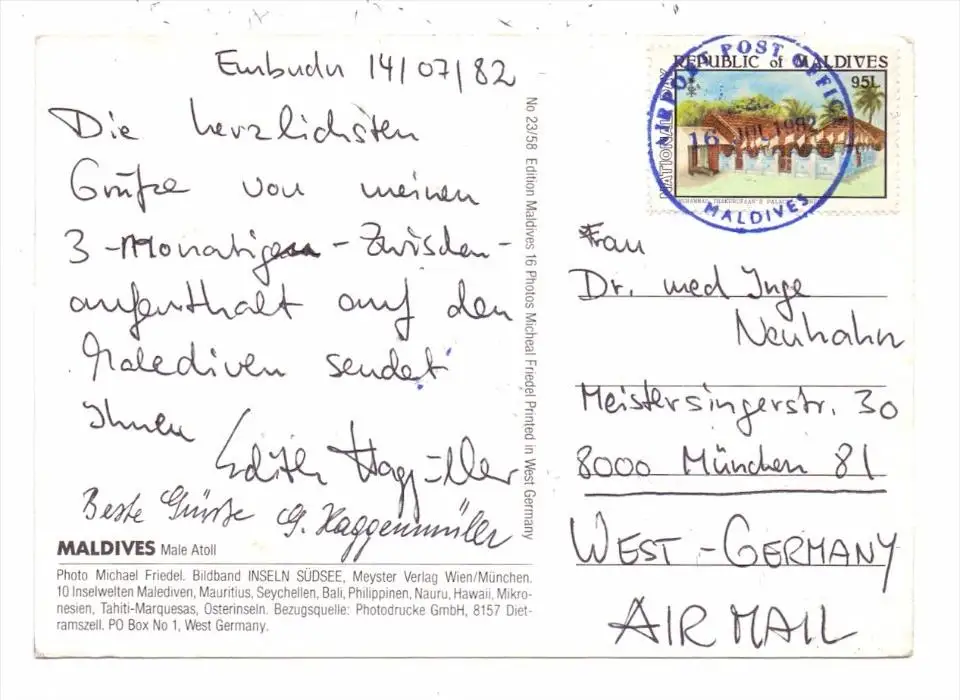 Embudu 14/07/82
Die herzlichsten
Grüße von meinen
3-Monatigen-Zwischen-
aufenthalt auf den
Malediven sendet
Ihnen
Edith Haggenmüller
Beste Grüße G. Haggenmüller
MALDIVES Male Atoll
Photo Michael Friedel. Bildband INSELN SÜDSEE, Meyster Verlag Wien/München.
10 Inselwelten Malediven, Mauritius, Seychellen, Bali, Philippinen, Nauru, Hawaii, Mikro-
nesien, Tahiti-Marquesas, Osterinseln. Bezugsquelle: Photodrucke GmbH, 8157 Diet-
ramszell. PO Box No 1, West Germany.
No 23/58 Edition Maldives 16 Photos Micheal Friedel Printed in West Germany
REPUBLIC of MALDIVES
95L
NATIONAL DAY
AIRPORT POST OFFICE
16 JUL 1982
MALDIVES
MUHAMMAD THAKURUFAAN'S PALACE
Frau
Dr. med Inge
Neuhahn
Meistersingerstr. 30
8000 München 81
WEST-GERMANY
AIR MAIL